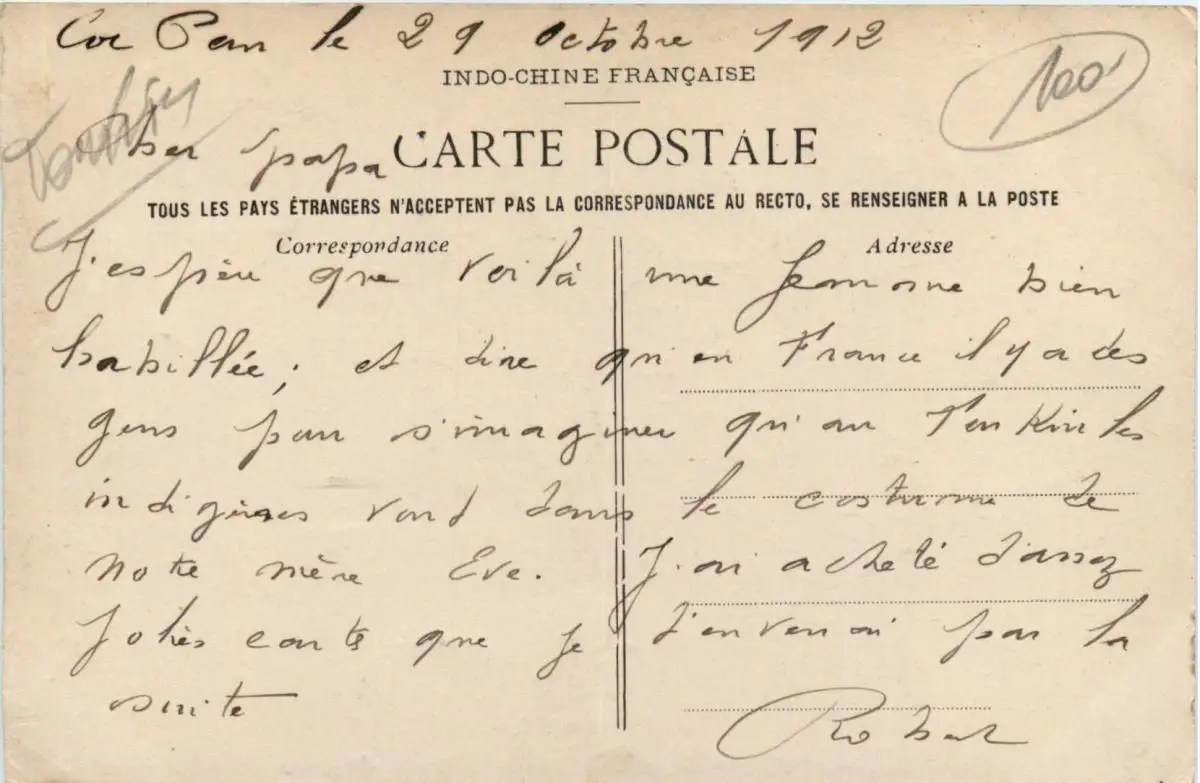 Coc Pan le 29 Octobre 1912
INDO-CHINE FRANÇAISE
100
Cher papa
CARTE POSTALE
TOUS LES PAYS ÉTRANGERS N'ACCEPTENT PAS LA CORRESPONDANCE AU RECTO, SE RENSEIGNER A LA POSTE
Correspondance
Adresse
J'espère que voilà une femme bien
habillée; et dire qu'en France il y a des
gens pour s'imaginer qu'au Tonkin les
indigènes vont dans le costume de
notre mère Eve. J'ai acheté d'assez
Jolies carte que je t'enverrai par la
suite
Robert